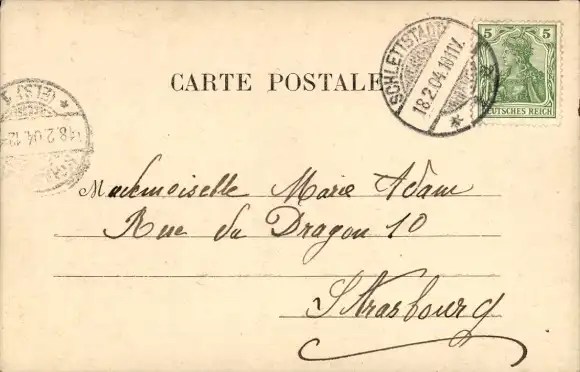 SCHLETTSTADT
18.2.04.10-11V.
5 5
DEUTSCHES REICH
CARTE POSTALE
18.2.04.12
Mademoiselle Marie Adam
Rue du Dragon 10
Strasbourg